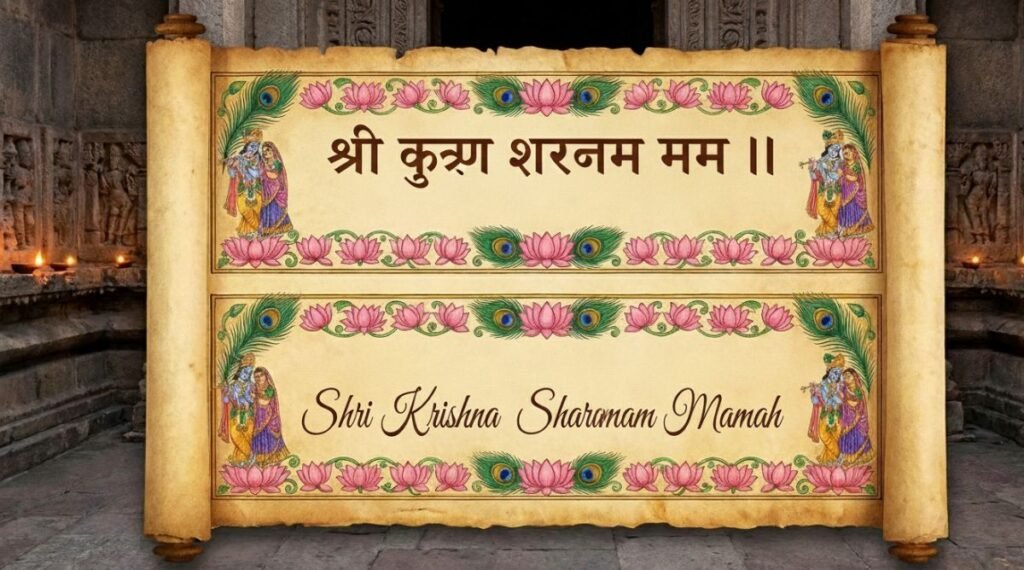 श्री शरनम मम ।।
Shri Krishna Sharamam Mamah